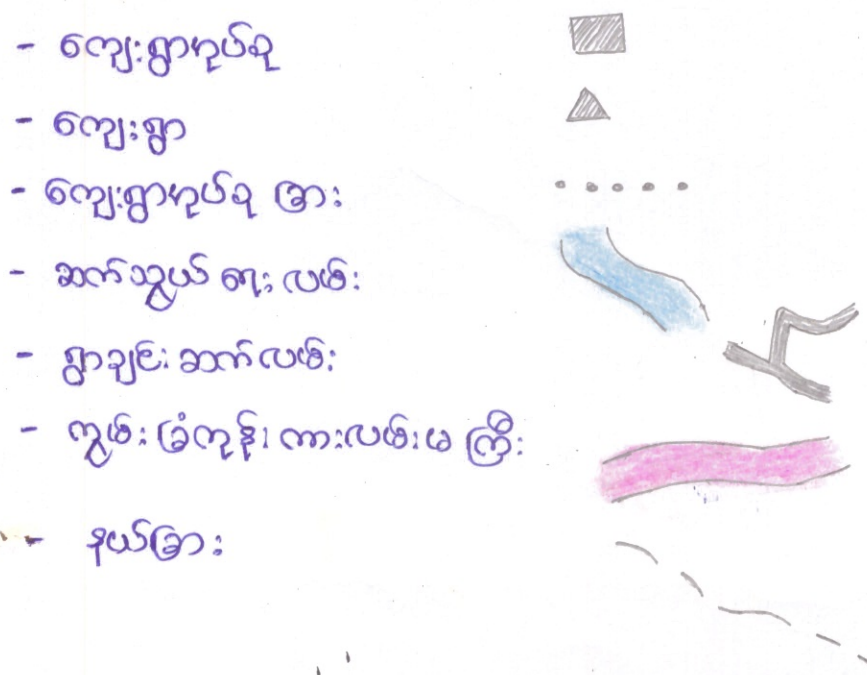 - ကျေးရွာဟုပ်စု
- ကျေးရွာ
- ကျေးရွာဟုပ်စု ခြား
- ဆက်သွယ် ရေး လမ်း
- ရွာချင်း ဆက်လမ်း
- ကွမ်း ခြံကုန်၊ ကားလမ်းမ ကြီး
- နယ်ခြား